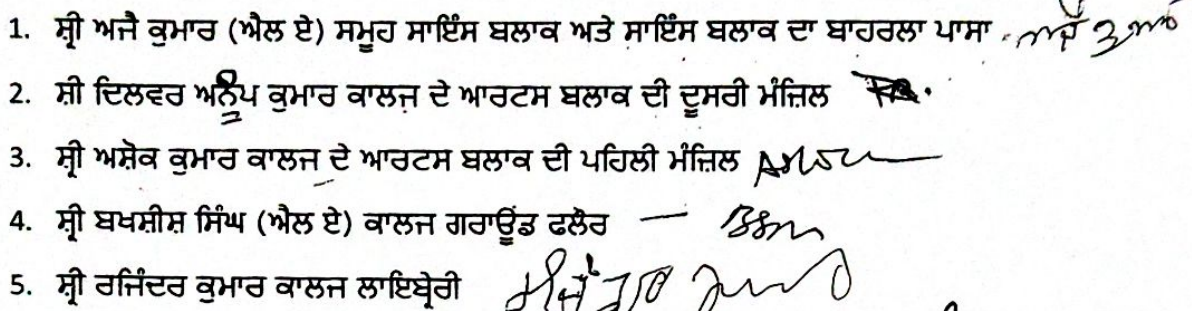 1. ਸ਼੍ਰੀ ਅਜੈ ਕੁਮਾਰ (ਐਲ ਏ) ਸਮੂਹ ਸਾਇੰਸ ਬਲਾਕ ਅਤੇ ਸਾਇੰਸ ਬਲਾਕ ਦਾ ਬਾਹਰਲਾ ਪਾਸਾ
2. ਸ਼ੀ ਦਿਲਵਰ ਅਨੂੰਪ ਕੁਮਾਰ ਕਾਲਜ ਦੇ ਆਰਟਸ ਬਲਾਕ ਦੀ ਦੂਸਰੀ ਮੰਜ਼ਿਲ
3. ਸ਼੍ਰੀ ਅਸ਼ੋਕ ਕੁਮਾਰ ਕਾਲਜ ਦੇ ਆਰਟਸ ਬਲਾਕ ਦੀ ਪਹਿਲੀ ਮੰਜ਼ਿਲ
4. ਸ਼੍ਰੀ ਬਖਸ਼ੀਸ਼ ਸਿੰਘ (ਐਲ ਏ) ਕਾਲਜ ਗਰਾਊਂਡ ਫਲੋਰ
5. ਸ਼੍ਰੀ ਰਜਿੰਦਰ ਕੁਮਾਰ ਕਾਲਜ ਲਾਇਬ੍ਰੇਰੀ